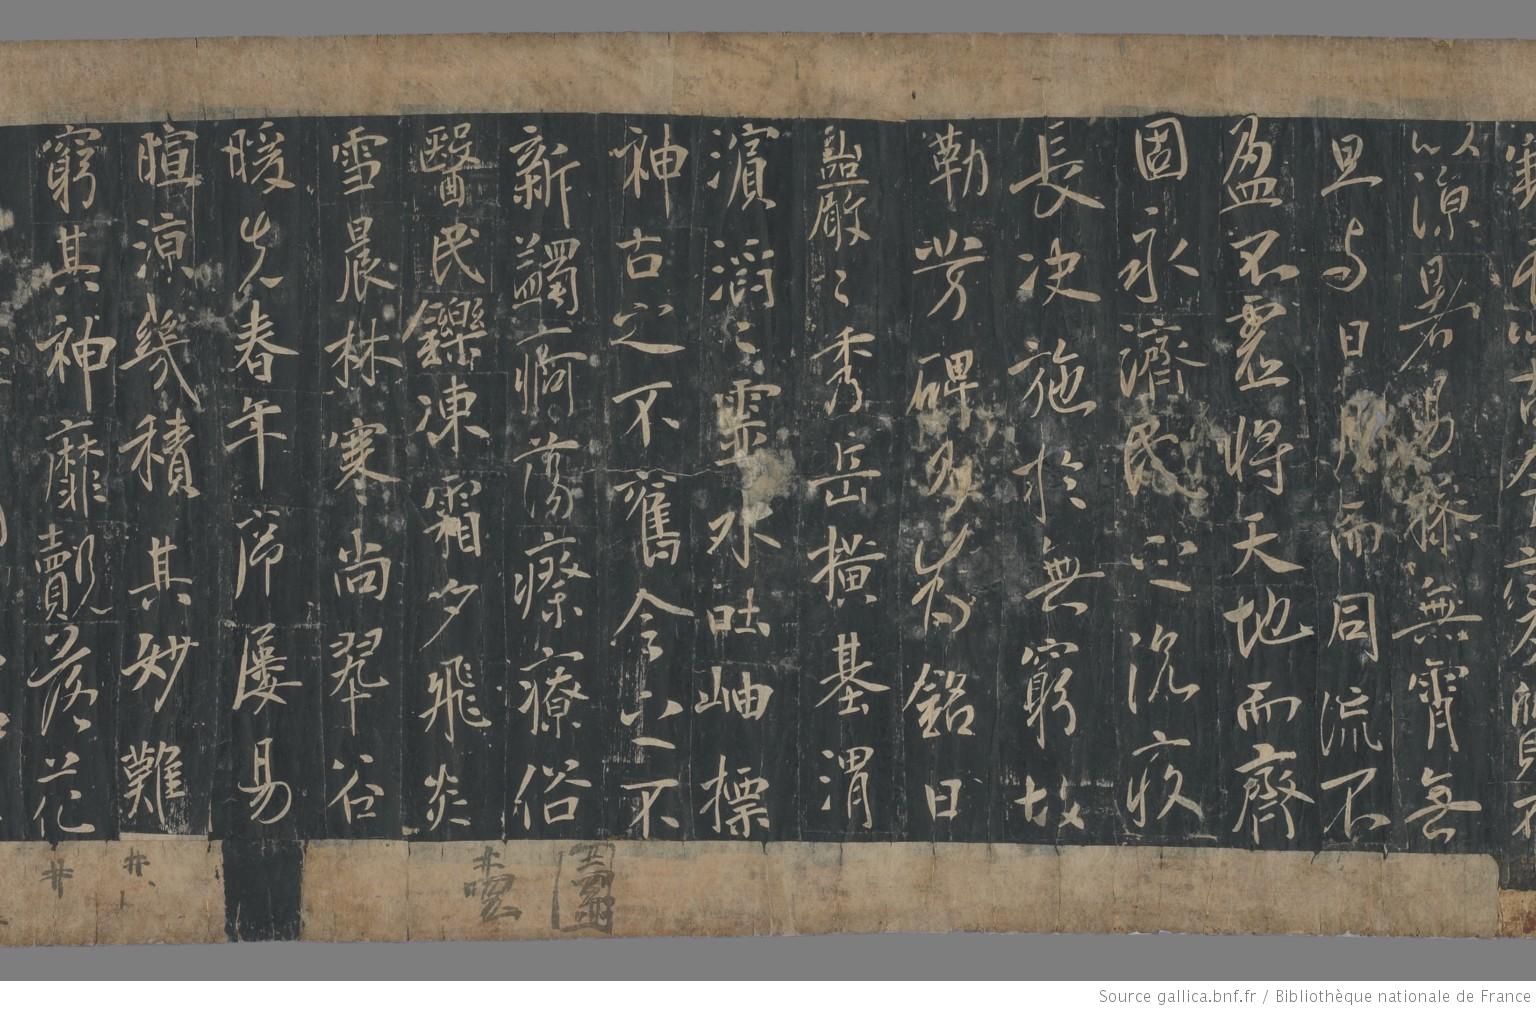 以涼暑易操無霄无
旦与日月而同流不
盈不虛將天地而齊
固永濟民之沉疾
長決施於無窮故
勒芳碑為銘曰
巖〻秀岳橫基渭
濱滔〻靈水吐岫標
神古之不舊今之不
新蠲痾蕩瘵療俗
醫民鑠凍霜夕飛炎
雪晨林寒尚翠谷
暖先春年序屢易
暄涼幾積其妙難
窮其神靡覿落花